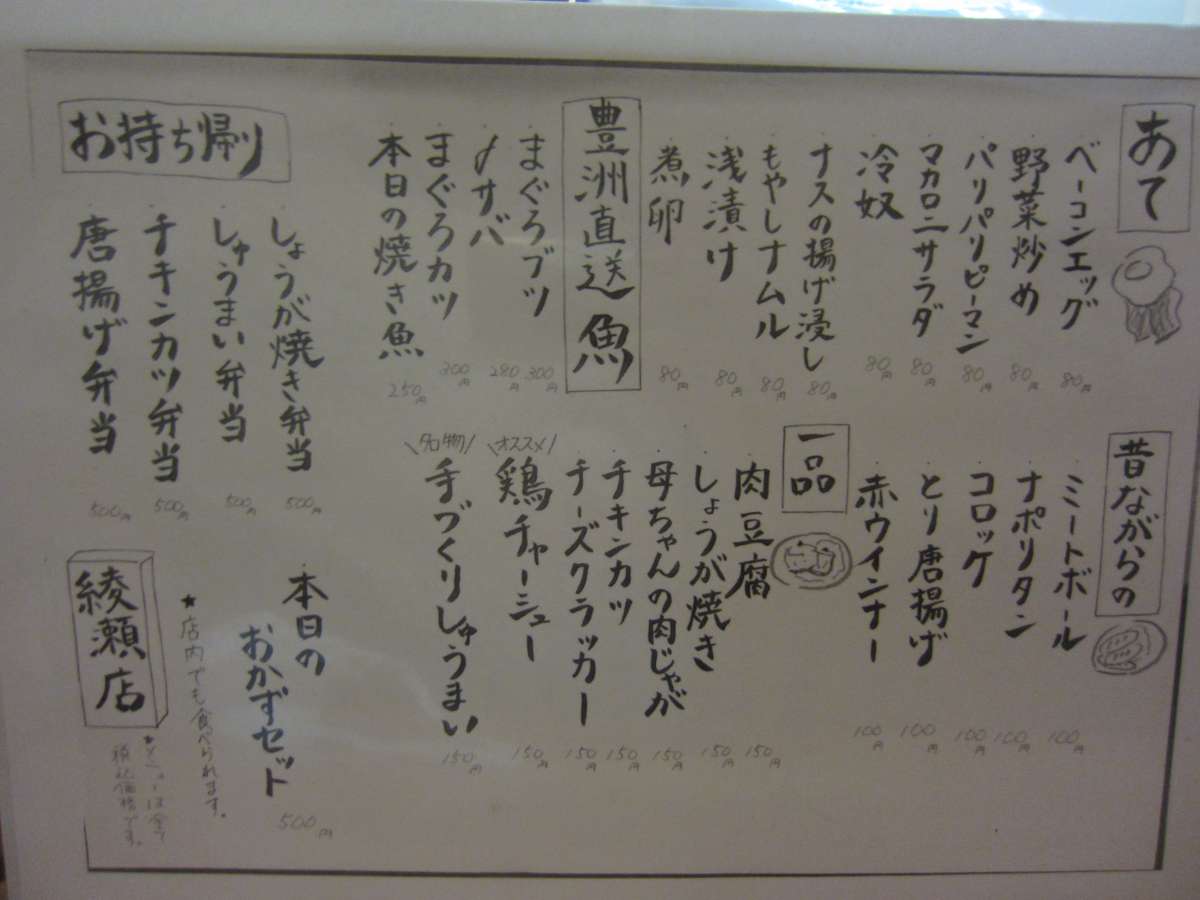 あて
ベーコンエッグ 80円
野菜炒め 80円
パリパリピーマン 80円
マカロニサラダ 80円
冷奴 80円
ナスの揚げ浸し 80円
もやしナムル 80円
浅漬け 80円
煮卵 80円
豊洲直送魚
まぐろブツ 300円
〆サバ 280円
まぐろカツ 300円
本日の焼き魚 250円
昔ながらの
ミートボール 100円
ナポリタン 100円
コロッケ 100円
とり唐揚げ 100円
赤ウインナー 100円
一品
肉豆腐 150円
しょうが焼き 150円
母ちゃんの肉じゃが 150円
チキンカツ 150円
チーズクラッカー 150円
\オススメ/
鶏チャーシュー 150円
\名物/
手づくりしゅうまい 150円
お持ち帰り
しょうが焼き弁当 500円
しゅうまい弁当 500円
チキンカツ弁当 500円
唐揚げ弁当 500円
本日の
おかずセット 500円
★店内でも食べられます。
綾瀬店
税込価格です。